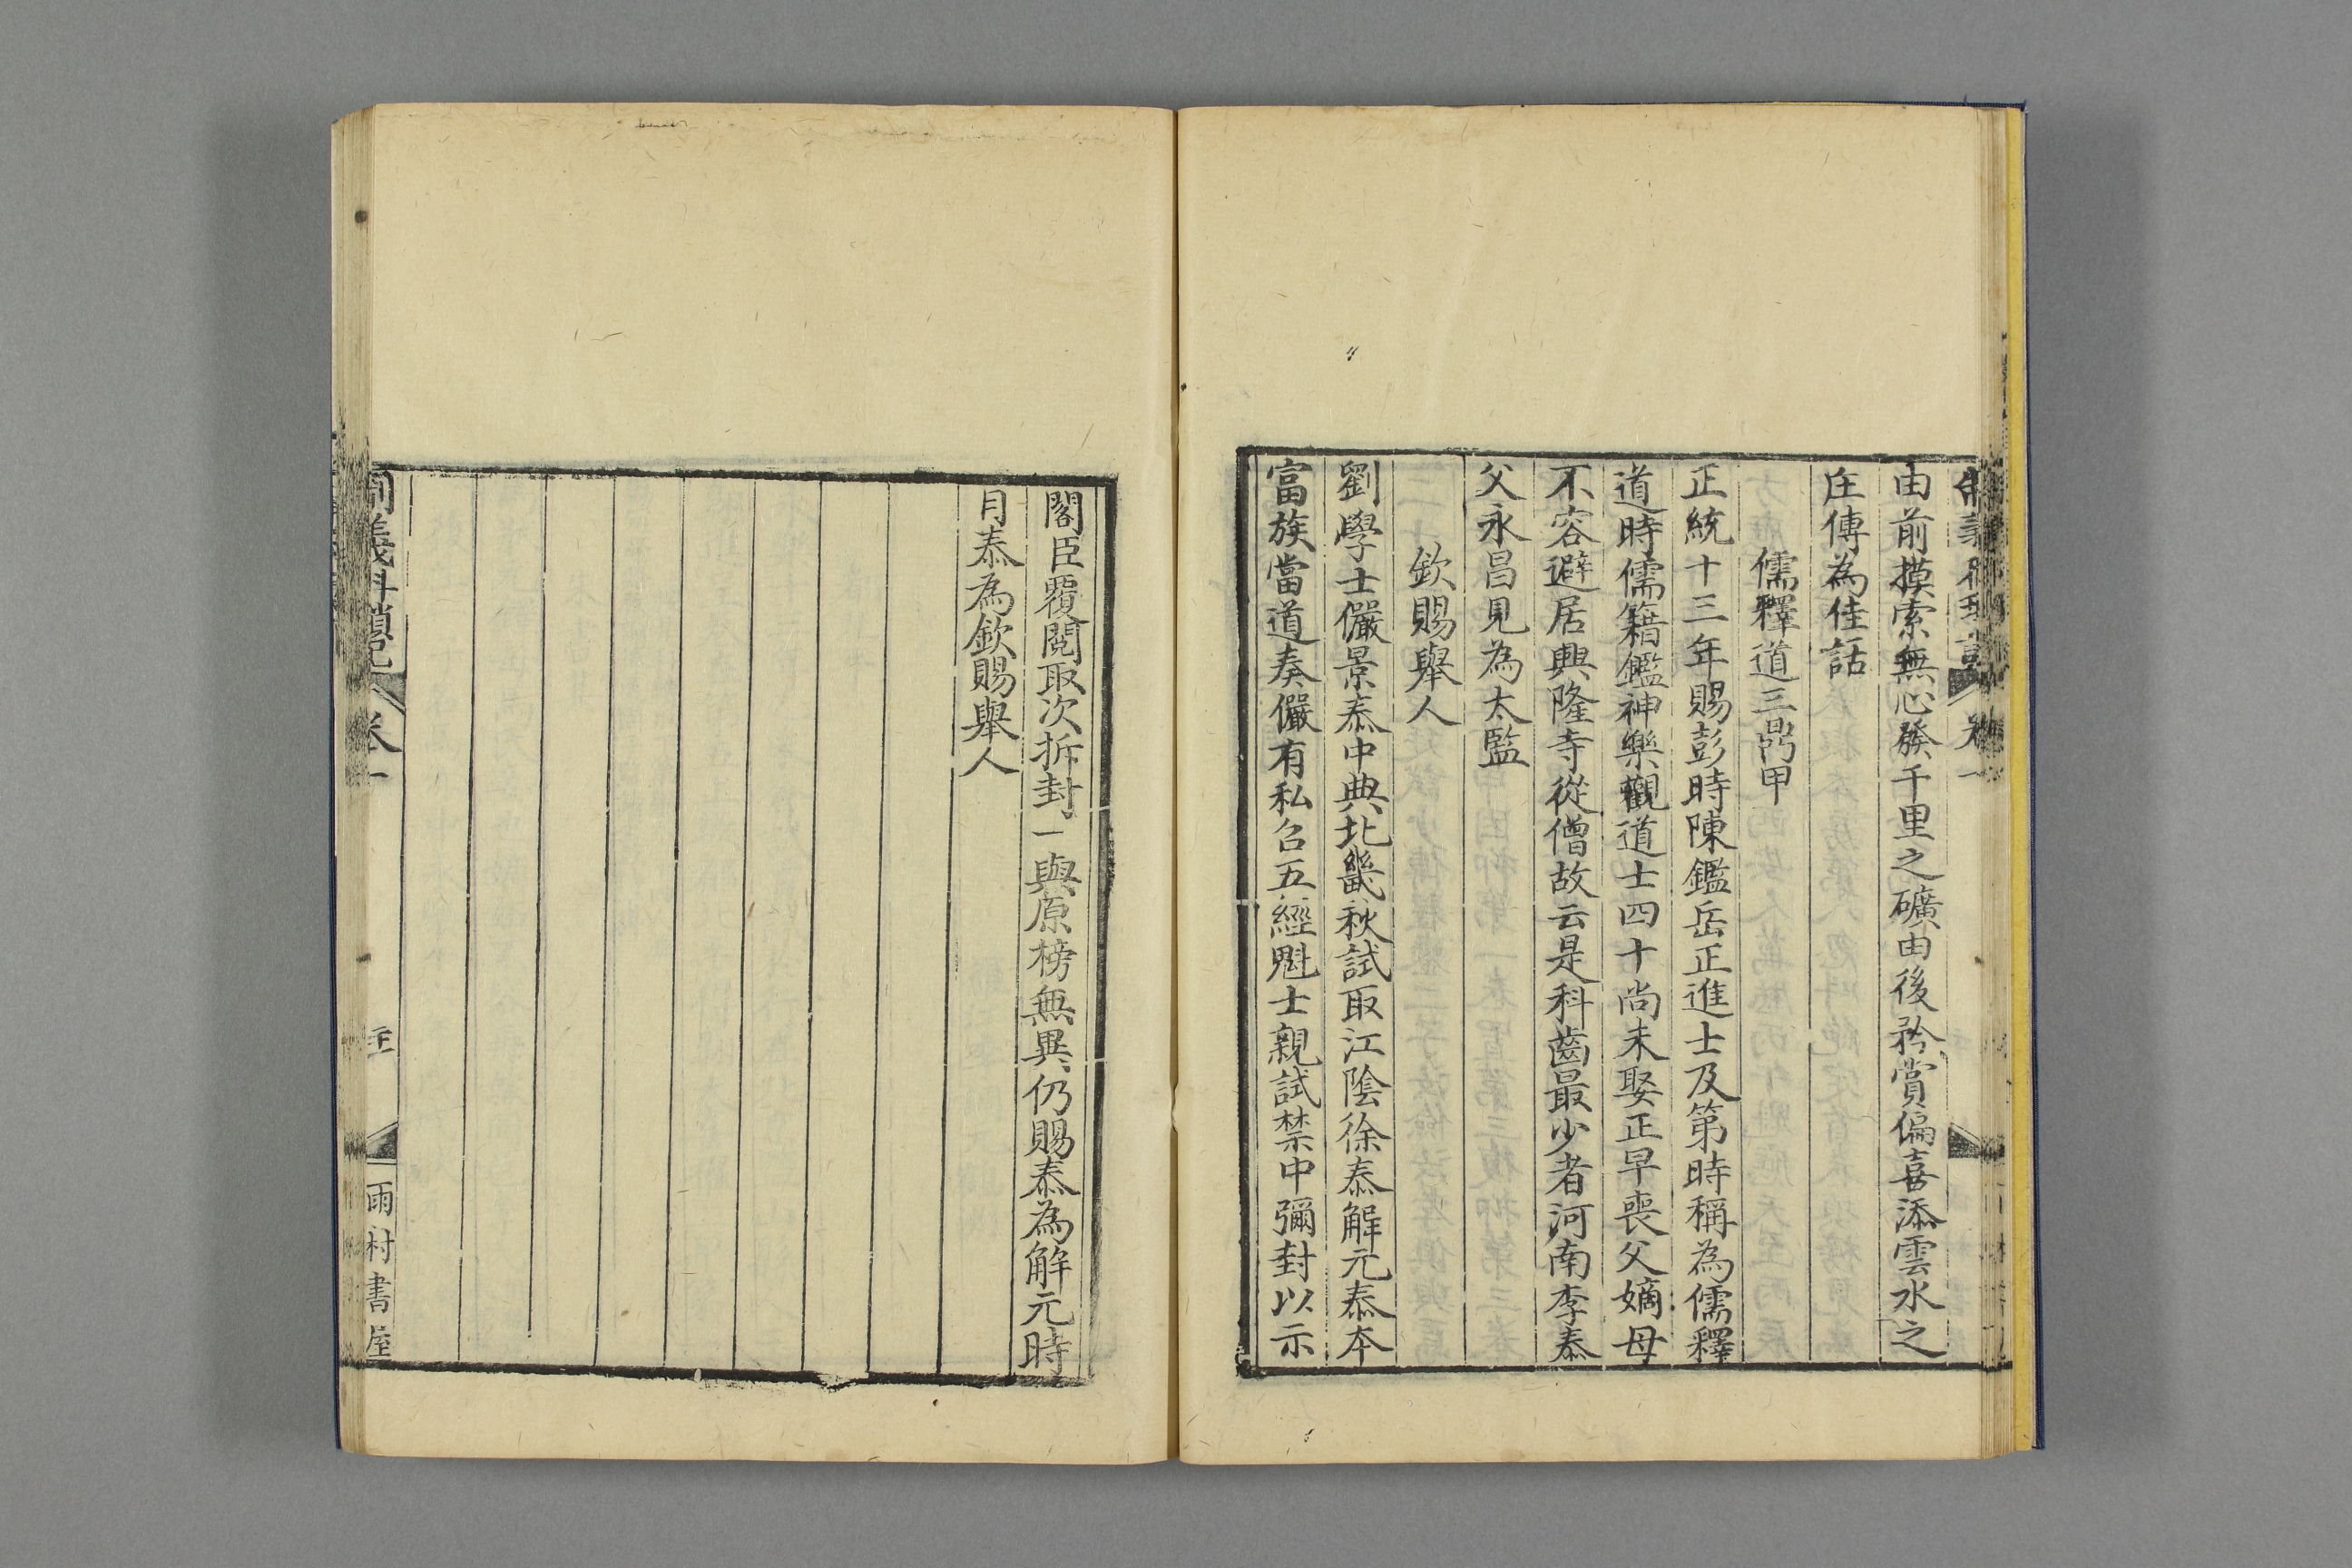 由前摸索無心發千里之礦由後矜賞偏喜添雲水之
庄傳為佳話
儒釋道三鼎甲
正統十三年賜彭時陳鑑岳正進士及第時稱為儒釋
道時儒籍鑑神樂觀道士四十尚未娶正早喪父嫡母
不容避居興隆寺從僧故云是科齒最少者河南李泰
父永昌見為太監
欽賜舉人
劉學士儼景泰中典北畿秋試取江陰徐泰解元泰本
富族當道奏儼有私召五經魁士親試禁中彌封以示
閣臣覆閱取次拆封一與原榜無異仍賜泰為解元時
目泰為欽賜舉人
卷一
雨村書屋